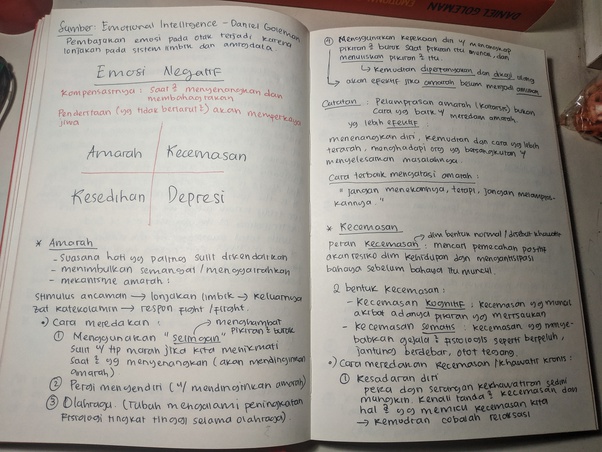 DANIEL GOLEMAN
Sumber: Emotional Intelligence - Daniel Goleman
Pembajakan emosi pada otak terjadi karena
lonjakan pada sistem limbik dan amigdala
Emosi Negatif
Kompensasinya: saat² menyenangkan dan
membahagiakan
Penderitaan (yg tidak berlarut²) akan memperkaya
jiwa
Amarah Kecemasan
Kesedihan Depresi
* Amarah
- Suasana hati yg paling sulit dikendalikan
- menimbulkan semangat / menggairahkan
- mekanisme amarah:
Stimulus ancaman → lonjakan limbik → keluarnya
zat katekolamin → respon fight/flight.
•) Cara meredakan: menghambat
① Menggunakan "selingan" pikiran² buruk
sulit u/ ttp marah jika kita menikmati
saat² yg menyenangkan (akan mendinginkan
amarah)
② Pergi menyendiri (u/ mendinginkan amarah)
③ Olahraga. (Tubuh mengalami peningkatan
Fisiologi tingkat tinggi selama olahraga).
④ Menggunakan kepekaan diri u/ menangkap
pikiran² buruk saat pikiran itu muncul, dan
menuliskan pikiran² itu.
↳ Kemudian dipertanyakan dan dikaji ulang
↳ akan efektif jika amarah belum menjadi amukan
Catatan: Pelampiasan amarah (katarsis) bukan
cara yg baik u/ meredam amarah.
yg lebih efektif:
menenangkan diri, kemudian dan cara yg lebih
terarah, menghadapi org yg bersangkutan u/
menyelesaikan masalahnya.
Cara terbaik mengatasi amarah:
"jangan menekannya, tetapi, jangan melampias-
kannya."
* Kecemasan
→ dlm bentuk normal / disebut khawatir
peran kecemasan: mencari pemecahan positif
akan resiko dlm kehidupan dgn mengantisipasi
bahaya sebelum bahaya itu muncul.
2 bentuk kecemasan:
- Kecemasan kognitif: kecemasan yg muncul
akibat adanya pikiran yg merisaukan
- Kecemasan somatis: kecemasan yg menye-
babkan gejala² fisiologis seperti berpeluh,
jantung berdebar, otot tegang.
•) Cara meredakan kecemasan / khawatir kronis:
① Kesadaran diri
peka dgn serangan kekhawatiran sedini
mungkin. Kenali tanda² kecemasan dan
hal² yg memicu kecemasan kita
→ Kemudian cobalah relaksasi